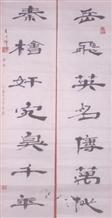 岳飛英名傳萬世
秦檜奸宄臭千年